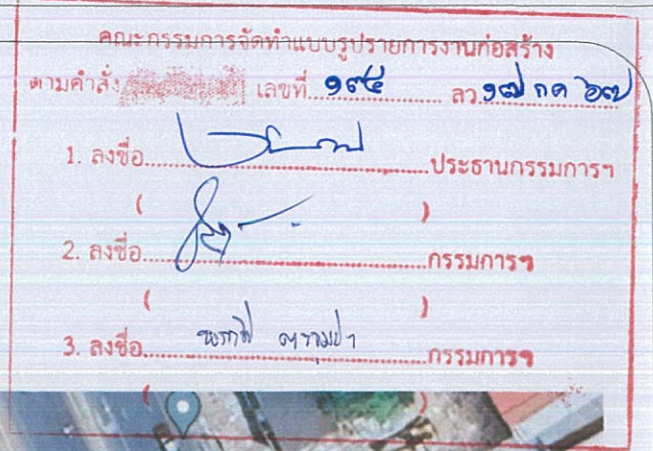 คณะกรรมการจัดทำแบบรูปรายการงานก่อสร้าง
ตามคำสั่ง เลขที่ ๑๙๕ ลว ๑๗ กค ๖๗
1. ลงชื่อ.....................ประธานกรรมการฯ
( )
2. ลงชื่อ.....................กรรมการฯ
( )
3. ลงชื่อ.....................กรรมการฯ
( )